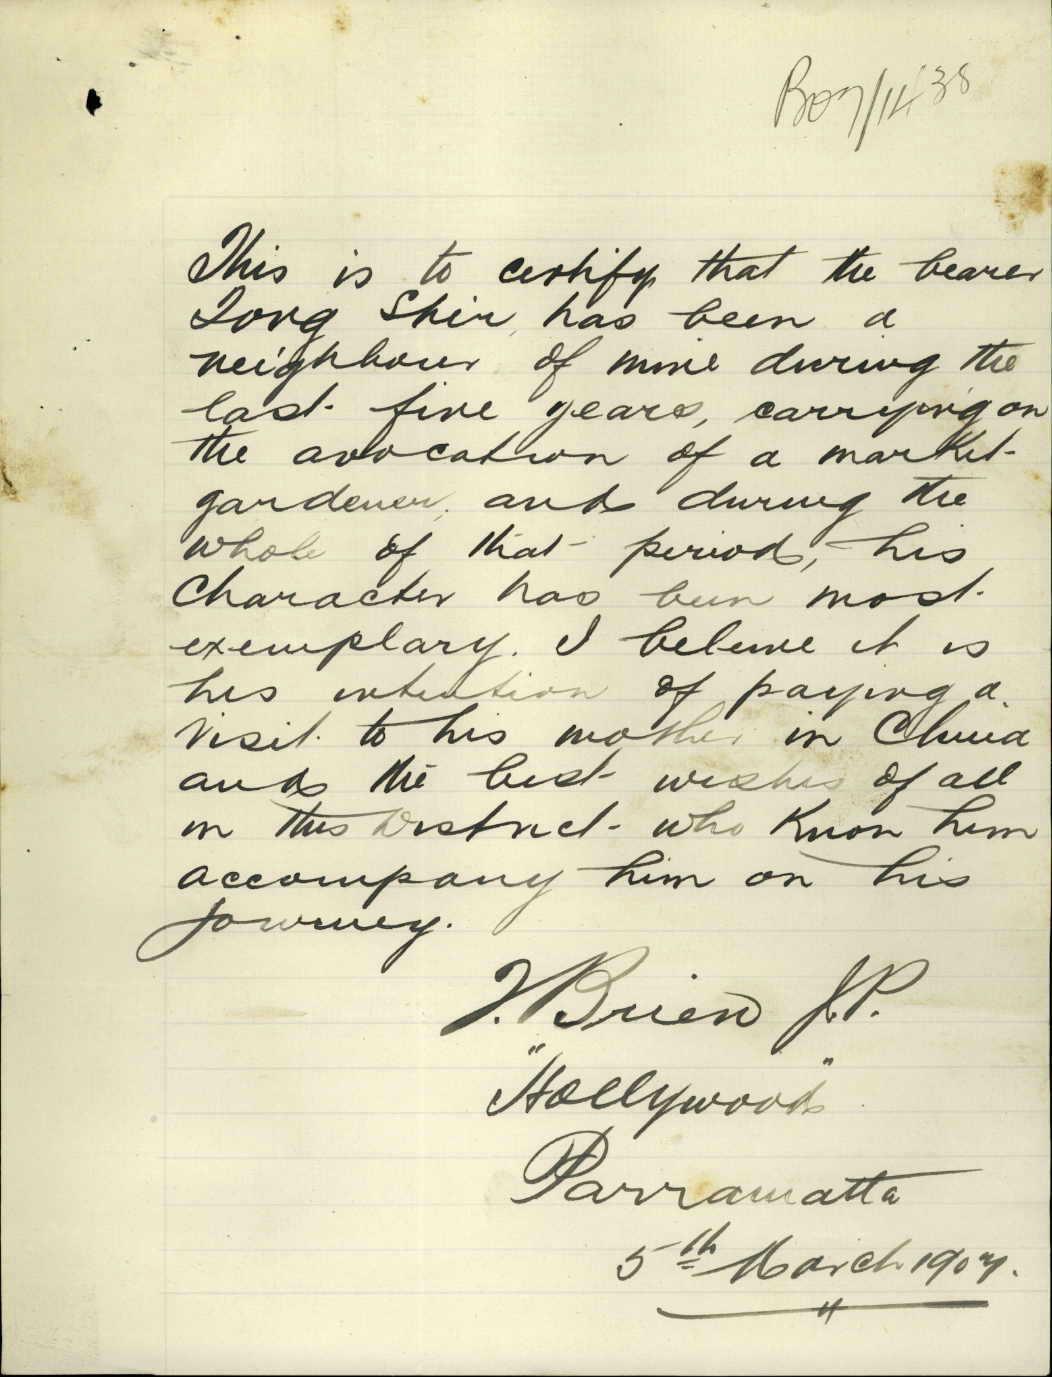 B07/1438
This is to certify that the bearer
Long Shir, has been a
neighbour of mine during the
last five years, carrying on
the avocation of a market-
gardener, and during the
whole of that period, his
character has been most
exemplary. I believe it is
his intention of paying a
visit to his mother in China
and the best wishes of all
in this District who know him
accompany him on his
journey.
J. Brien J.P.
"Hollywood"
Parramatta
5th March 1907.